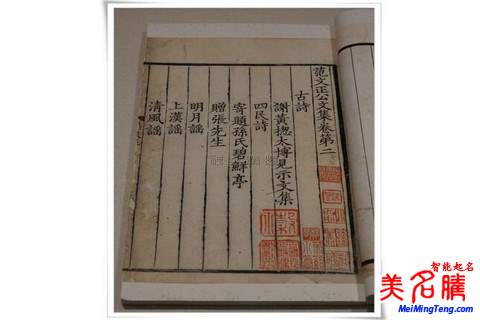 范文正公文集卷第二
古詩
謝黄揔太博見示文集
四民詩
寄題孫氏碧鮮亭
贈張先生
明月謡
上漢謡
清風謡
智能起名
美名腾
MeiMingTeng.com